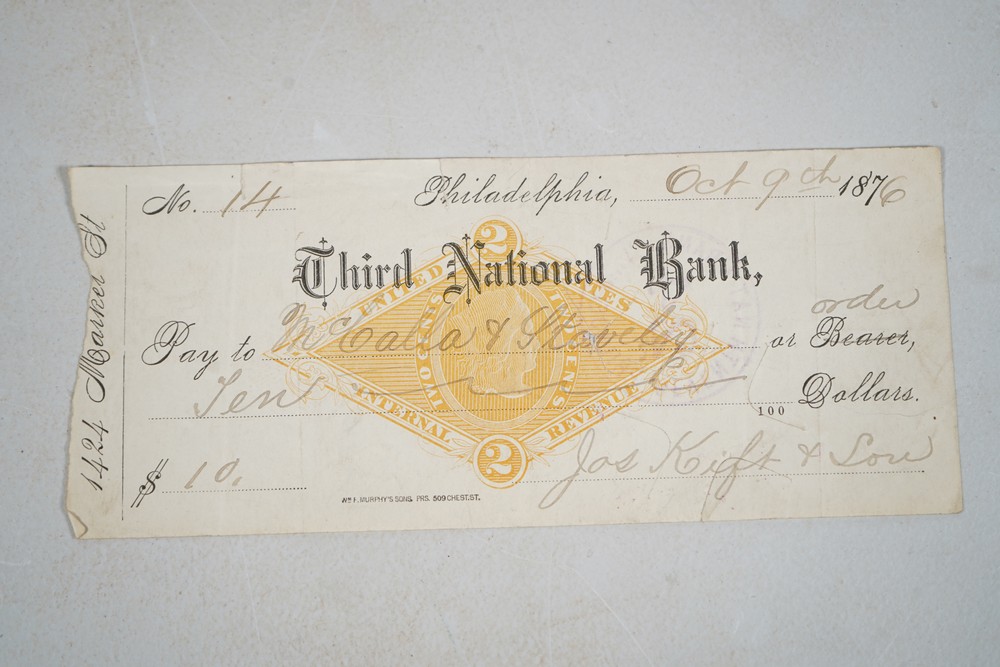 1424 Market St
No. 14 Philadelphia, Oct 9th 1876
Third National Bank,
2
UNITED STATES
TWO CENTS
INTERNAL REVENUE
2
order
Pay to McCalla & Stavely or Bearer,
Ten 100 Dollars.
$ 10.
Jos Kift & Son
WM F. MURPHY'S SONS, PRS. 509 CHEST. ST.